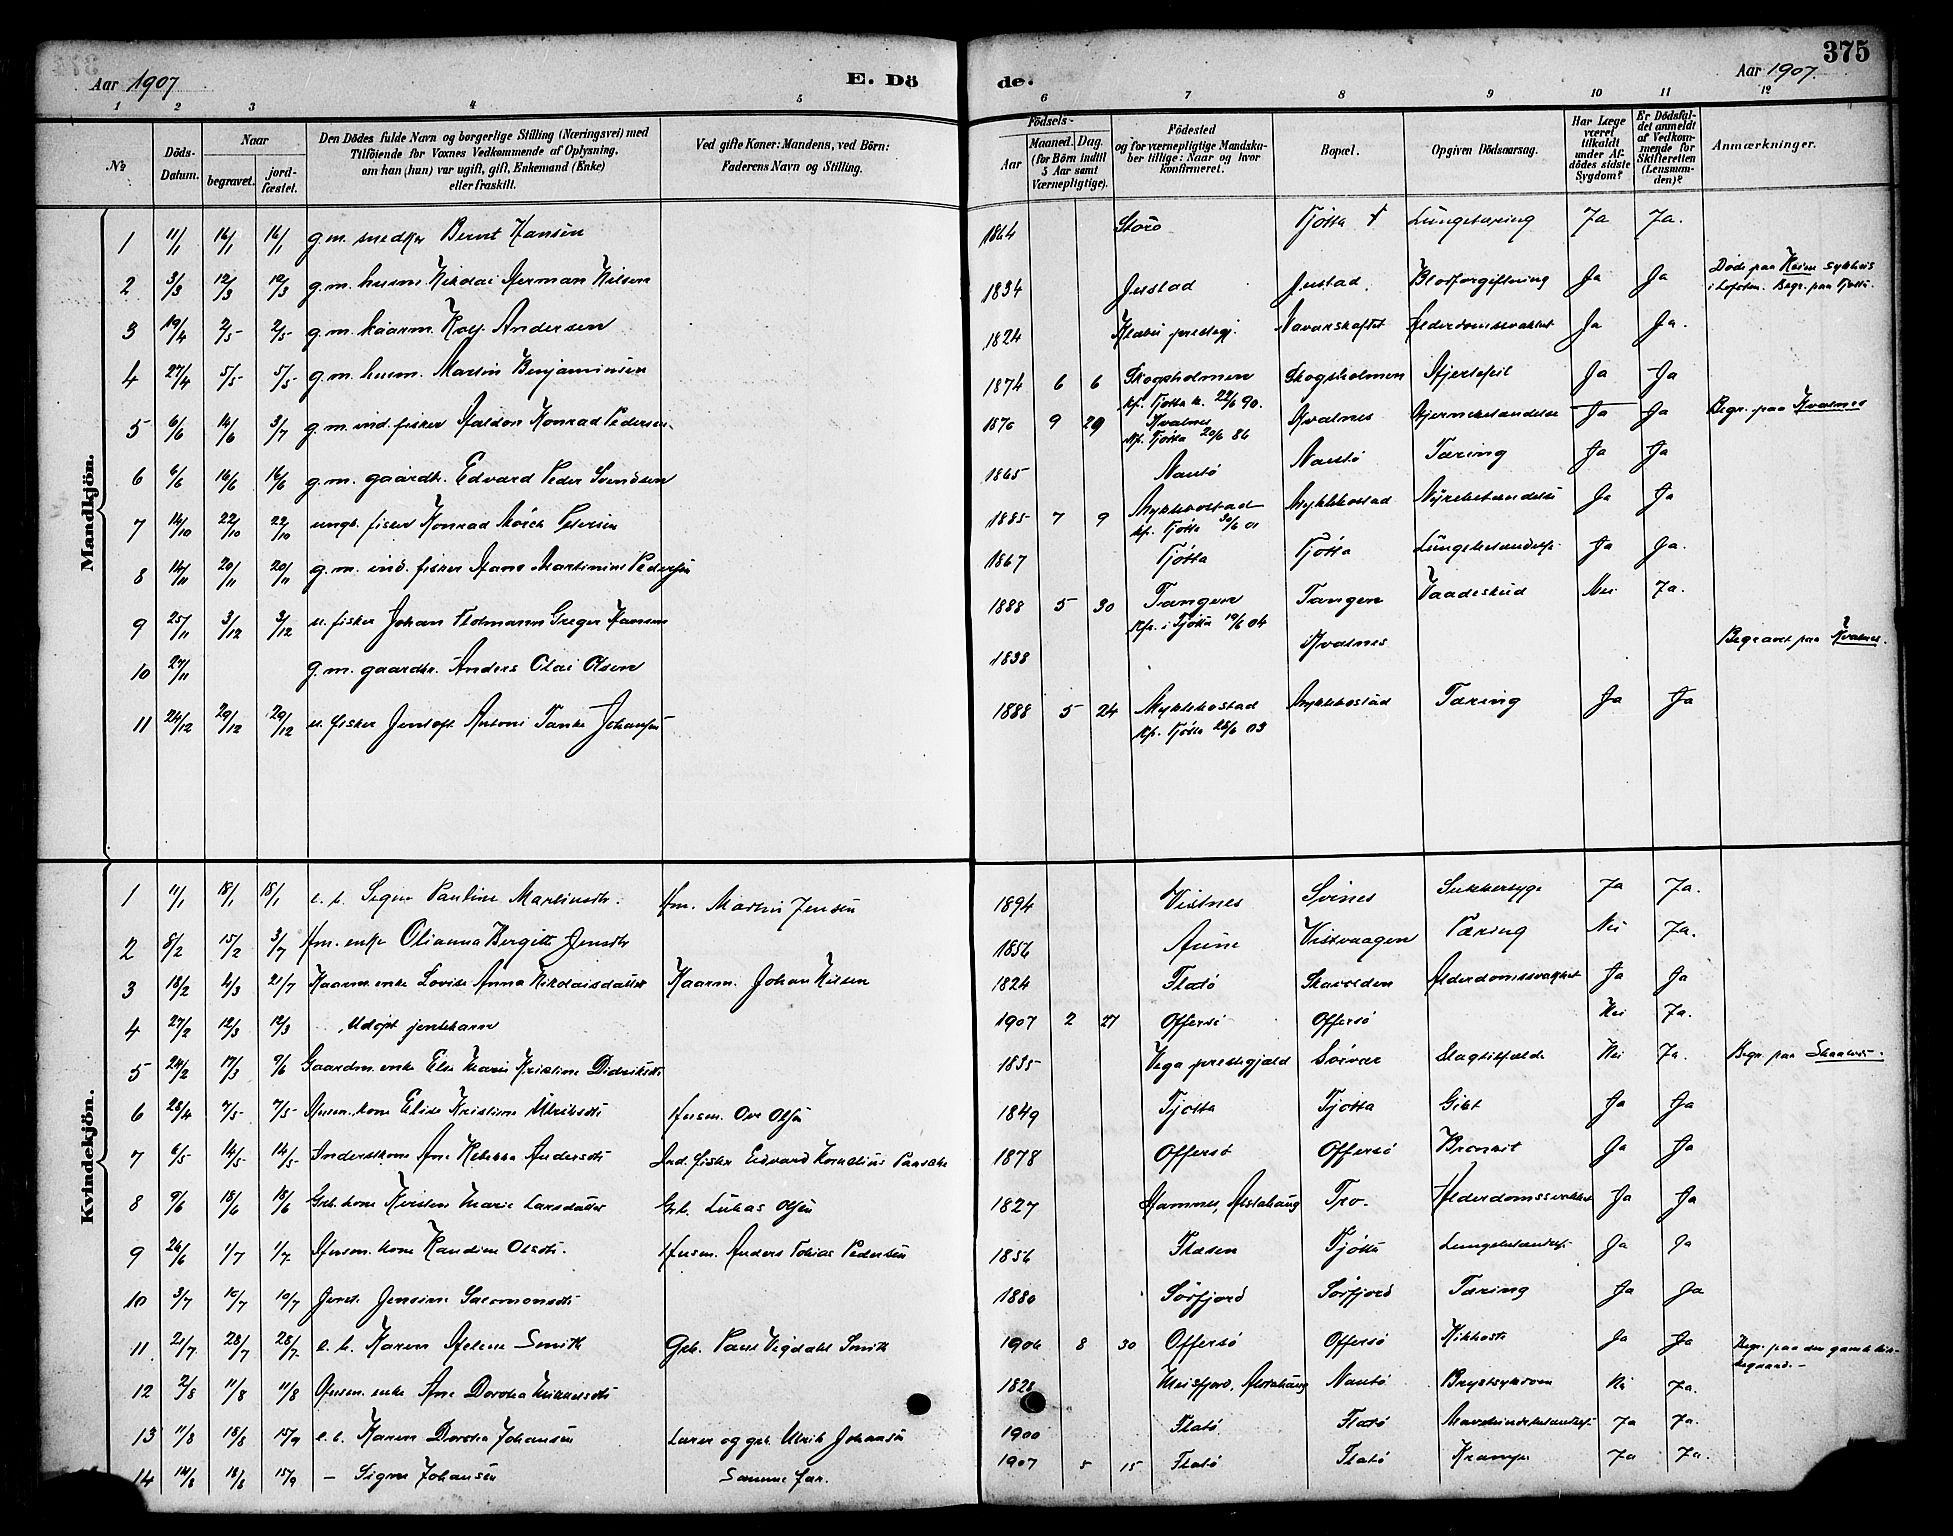 375
Aar 1907
E. Dö
de.
Aar 1907.
1 2 3 4 5 6 7 8 9 10 11 12
No
Döds-Datum.
Naar
begravet.
jord-fæstet.
Den Dödes fulde Navn og borgerlige Stilling (Næringsvei) med
Tilföiende for Voxnes Vedkommende af Oplysning,
om han (hun) var ugift, gift, Enkemand (Enke)
eller fraskilt.
Ved gifte Koner: Mandens, ved Börn:
Faderens Navn og Stilling.
Födsels-
Aar
Maaned. Dag.
(for Börn indtil
5 Aar samt
Værnepligtige).
Födested
og for værnepligtige Mandska-
ber tillige: Naar og hvor
konfirmeret.
Bopæl.
Opgiven Dödsaarsag.
Har Læge
været
tilkaldt
under Af-
dödes sidste
Sygdom?
Er Dödsfal-
det anmeldt
af Vedkom-
mende for
Skifteretten
(Lensman-
den)?
Anmærkninger.
Mandkjön.
1 11/1 16/1 16/1 g.m. snedker Bernt Hansen 1864 Storö Tjötta Lungetæring Ja Ja.
2 3/3 12/3 12/3 g.m. husm Nikolai Herman Nilsen 1834 Justad Justad. Blodforgiftning Ja Ja Död paa sykhus
i Lofoten. Begr. paa Tjötta.
3 19/4 2/5 2/5 g.m. kaarm. Andersen 1824 prestegj. Alderdomssvakhet Ja Ja.
4 27/4 5/5 5/5 g.m. husm. Martin Benjaminsen 1874 6 6 Skogsholmen Skogsholmen Hjertefeil Ja Ja
kf. Tjötta k. 22/6 90.
5 6/6 14/6 3/7 g.m. ind. fisker Haldor Konrad Pedersen 1870 9 29 Kvalnes Kvalnes Hjernebetændelse Ja Ja Begr. paa Kvalnes
kf. Tjötta 20/6 86
6 6/6 16/6 16/6 g.m. gaardbr. Edvard Peder Svendsen 1865 Nautö Nautö Tæring Ja Ja
7 14/10 22/10 22/10 ungk. fisker Konrad Mörch Petersen 1885 7 9 Myklebostad Myklebostad Nyrebetændelse Ja Ja
kf. Tjötta 30/6 01
8 14/11 20/11 20/11 g.m. ind. fisker Hans Martinius Pedersen 1867 Tjötta Tjötta Lungebetændelse Ja Ja.
9 25/11 3/12 3/12 u. fisker Johan Tholmann Greger Hansen 1888 5 30 Tangen Tangen Vaadeskud Nei Ja.
kfr. i Tjötta 19/6 04
10 27/11 g.m. gaardbr. Anders Olai Olsen 1838 Kvalnes Begravet paa Kvalnes.
11 24/12 29/12 29/12 u. fisker Jentoft Antoni Tanke Johansen 1888 5 24 Myklebostad Myklebostad Tæring Ja Ja
kfr. Tjötta 28/6 03
Kvindekjön.
1 11/1 18/1 18/1 e. b. Signe Pauline Martinsdtr. Hm. Martin Jensen 1894 Vistnes Svines Sukkersyge Ja Ja.
2 8/2 15/2 3/7 Hm. enke Olianna Bergitte Jensdtr 1856 Aune Vistvaagen Tæring Nei Ja.
3 18/2 4/3 21/7 Kaarm. enke Lovise Anna Nikolaisdatter Kaarm. Johan Nilsen 1824 Flatö Skavolden Alderdomssvakhet Ja Ja
4 27/2 12/3 12/3 Udöpt jentebarn 1907 2 27 Offersö Offersö Nei Ja.
5 24/2 17/3 9/6 Gaardm. enke Else Marie Kristine Didriksdtr 1835 Vega prestegjæld Sörvær Slagtilfælde Nei Ja. Begr. paa
6 28/4 7/5 7/5 Husm. kone Elise Kristine Ulriksdtr Husm. Ove Olsen 1849 Tjötta Tjötta Gikt Ja Ja
7 6/5 14/5 14/5 Inderstkone Ane Rebekka Andersdtr Ind. fisker Edvard Kornelius Paasche 1878 Offersö Offersö Bronkit Ja Ja
8 9/6 18/6 18/6 Grb. kone Kirsten Marie Larsdatter Grb. Lukas Olsen 1827 Hamnes, Alstahaug Tro. Alderdomssvakhet Ja Ja
9 26/6 1/7 1/7 Husm. kone Randine Olsdtr. Husm. Anders Tobias Pedersen 1856 Flæsen Tjötta Lungebetændelse Ja Ja
10 3/7 10/7 10/7 Jente Jensine Salomonsdtr 1880 Sörfjord Sörfjord Tæring Ja Ja
11 21/7 28/7 28/7 e. b. Karen Helene Smith Grb. Paul Vigdahl Smith 1906 8 30 Offersö Offersö Kikhoste Ja Ja Begr. paa den gamle kir-
kegaard.
12 2/8 11/8 11/8 Husm. enke Ane Dorothea 1828 Alstahaug Nautö Brystsykdom Nei Ja.
13 11/8 18/8 15/9 e. b. Karen Dorthea Johansen Lærer og grb. Ulrik Johansen 1900 Flatö. Flatö Ja Ja.
14 14/8 18/8 15/9 — Signe Johansen Samme far. 1907 5 15 Flatö Flatö Krampe Ja Ja.